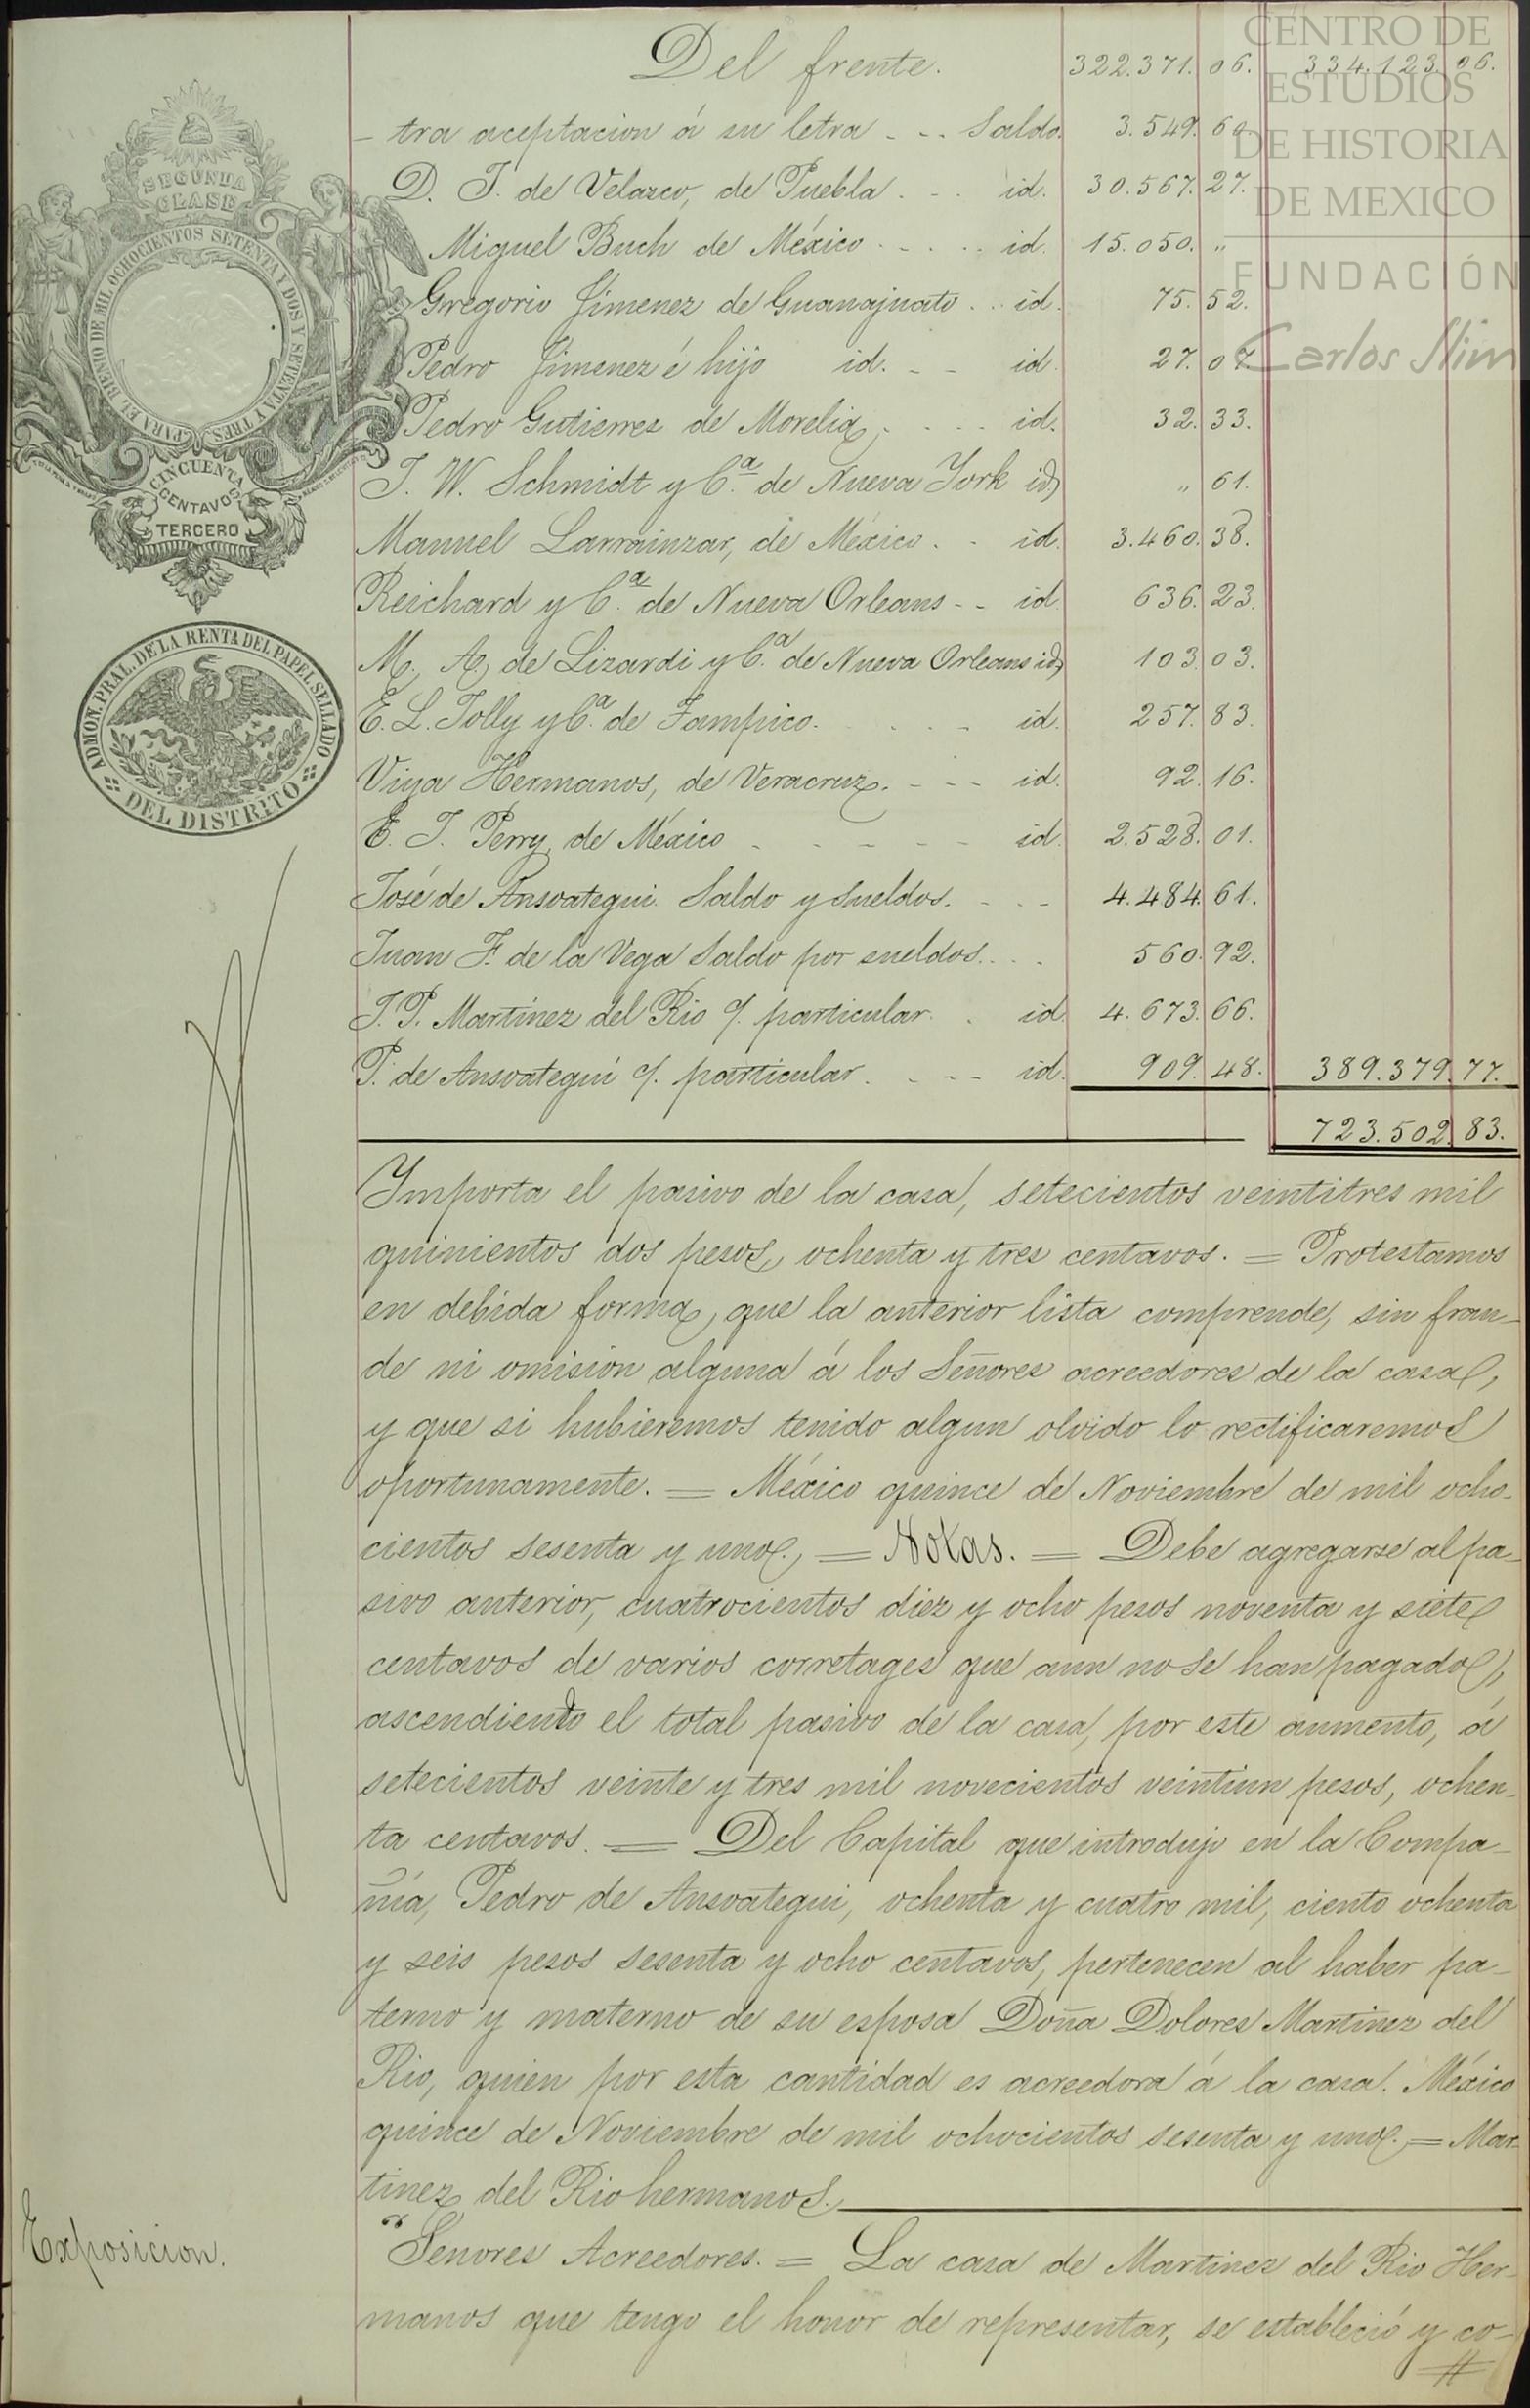 CENTRO DE
ESTUDIOS
DE HISTORIA
DE MEXICO
FUNDACIÓN
Carlos Slim
SEGUNDA
CLASE
PARA EL BIENIO DE MIL OCHOCIENTOS SETENTA Y DOS Y SETENTA Y TRES
CINCUENTA
CENTAVOS
TERCERO
ADMON. PRAL. DE LA RENTA DEL PAPEL SELLADO
DEL DISTRITO
Del frente. 322.371. 06. 334.123. 06.
tra aceptacion á su letra - - - Saldo. 3.549. 60
D. J. de Velasco, de Puebla . - . id. 30.567. 27.
Miguel Buch de México - - - - id. 15.050. "
Gregorio Jimenez de Guanajuato . . id. 75. 52.
Pedro Jimenez é hijo id. - - id. 27. 07.
Pedro Gutierrez de Morelia, - - - - id. 32. 33.
J. W. Schmidt y Cª. de Nueva York id " 61.
Manuel Larrainzar, de México . - id. 3.460. 38.
Reichard y Cª. de Nueva Orleans - - id. 636. 23.
M. A. de Lizardi y Cª. de Nueva Orleans id 103. 03.
E. L. Jolly y Cª. de Tampico. - - - - id. 257. 83.
Viya Hermanos, de Veracruz. - - - id. 92. 16.
E. J. Perry, de México - - - - - id. 2.528. 01.
José de Ansoategui. Saldo y sueldos. - - - 4.484. 61.
Juan F. de la Vega Saldo por sueldos. . . . 560. 92.
J. P. Martinez del Rio c/. particular. . id. 4.673. 66.
P. de Ansoategui c/. particular. - - - id. 909. 48. 389.379. 77.
723.502. 83.
Importa el pasivo de la casa, setecientos veintitres mil
quinientos dos pesos, ochenta y tres centavos. = Protestamos
en debida forma, que la anterior lista comprende, sin frau-
de ni omision alguna á los Señores acreedores de la casa,
y que si hubieremos tenido algun olvido lo rectificaremos
oportunamente. = México quince de Noviembre de mil ocho-
cientos sesenta y uno. = Notas. = Debe agregarse al pa-
sivo anterior, cuatrocientos diez y ocho pesos noventa y siete
centavos de varios corretages que aun no se han pagado,
ascendiendo el total pasivo de la casa, por este aumento, á
setecientos veinte y tres mil novecientos veintiun pesos, ochen-
ta centavos. = Del Capital que introdujo en la Compa-
ñia, Pedro de Ansoategui, ochenta y cuatro mil, ciento ochenta
y seis pesos sesenta y ocho centavos, pertenecen al haber pa-
terno y materno de su esposa Doña Dolores Martinez del
Rio, quien por esta cantidad es acreedora á la casa. México
quince de Noviembre de mil ochocientos sesenta y uno. = Mar-
tinez del Rio hermanos.
Exposicion.
"Señores Acreedores. = La casa de Martinez del Rio Her-
manos que tengo el honor de representar, se estableció y co-